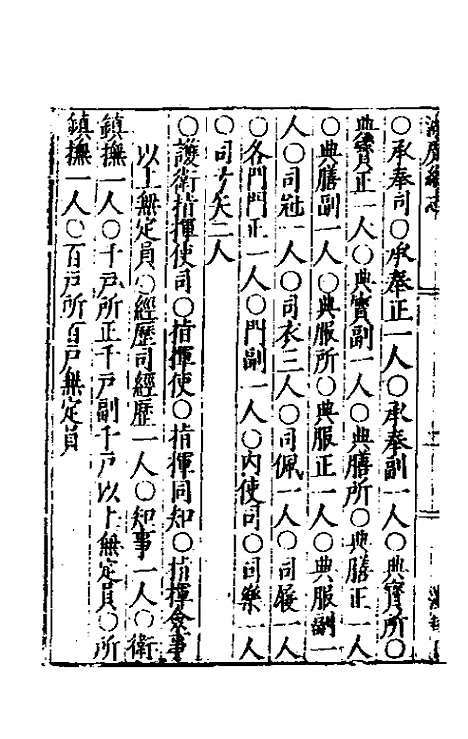 湖廣總志
○承奉司○承奉正一人○承奉副一人○典寶所○
典寶正一人○典寶副一人○典膳所○典膳正一人
○典膳副一人○典服所○典服正一人○典服副一
人○司冠一人○司衣三人○司佩一人○司履一人
○各門門正一人○門副一人○內使司○司樂一人
○司弓矢二人
○護衛指揮使司○指揮使○指揮同知○指揮僉事
以上無定員○經歷司經歷一人○知事一人○衛
鎮撫一人○千戶所正千戶副千戶以上無定員○所
鎮撫一人○百戶所百戶無定員